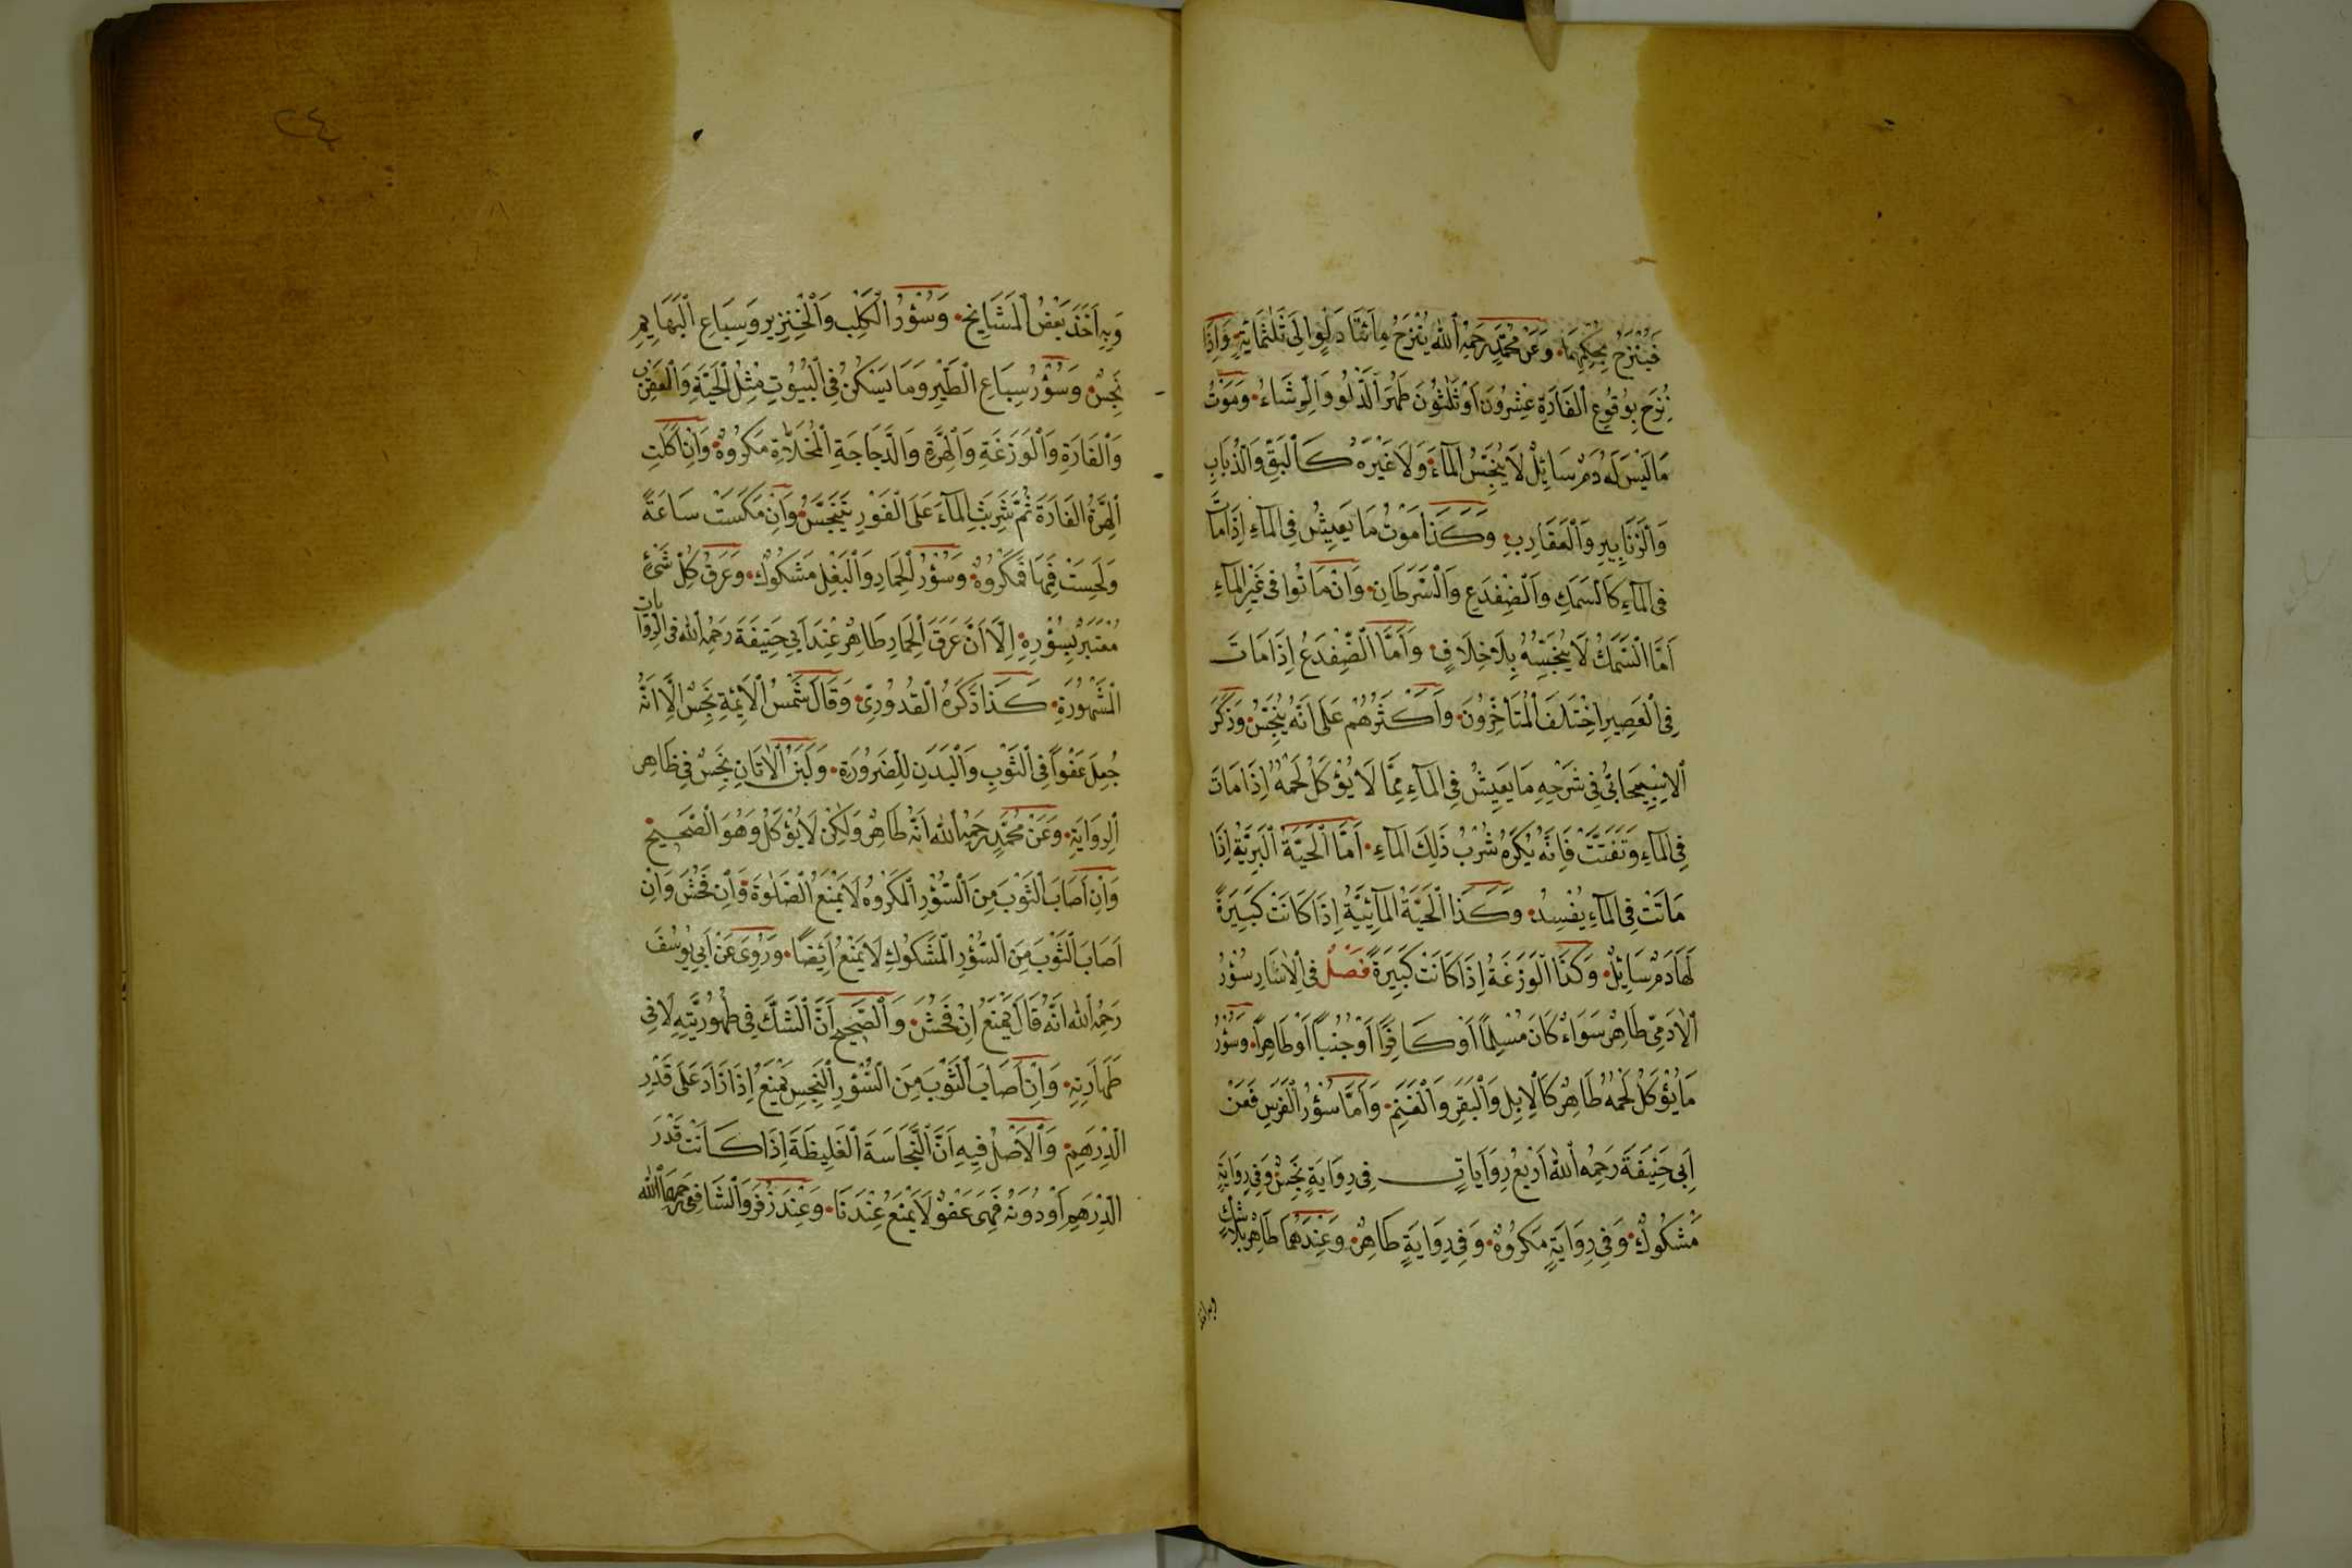 فَيُنْزَحُ بِحُكْمِهِمَا وَعَنْ مُحَمَّدٍ رَحِمَهُ اللهُ يُنْزَحُ مِائَتَا دَلْوٍ اِلَى ثَلٰثِمِائَةٍ وَاِذَا
نُزِحَ بِوُقُوعِ الْفَارَةِ عِشْرُونَ اَوْ ثَلٰثُونَ طَهُرَ الدَّلْوُ وَالرِّشَاءُ وَمَوْتُ
مَا لَيْسَ لَهُ دَمٌ سَائِلٌ لَا يُنَجِّسُ الْمَاءَ وَلَا غَيْرَهُ كَالْبَقِّ وَالذُّبَابِ
وَالزَّنَابِيرِ وَالْعَقَارِبِ وَكَذَا مَوْتُ مَا يَعِيشُ فِى الْمَاءِ اِذَا مَاتَ
فِى الْمَاءِ كَالسَّمَكِ وَالضِّفْدَعِ وَالسَّرَطَانِ وَاِنْ مَاتُوا فِى غَيْرِ الْمَاءِ
اَمَّا السَّمَكُ لَا يُنَجِّسُهُ بِلَا خِلَافٍ وَاَمَّا الضِّفْدَعُ اِذَا مَاتَ
فِى الْعَصِيرِ اِخْتَلَفَ الْمُتَأَخِّرُونَ وَاَكْثَرُهُمْ عَلَى اَنَّهُ يُنَجِّسُ وَذَكَرَ
الْاِسْبِيجَابِىُّ فِى شَرْحِهِ مَا يَعِيشُ فِى الْمَاءِ مِمَّا لَا يُؤْكَلُ لَحْمُهُ اِذَا مَاتَ
فِى الْمَاءِ وَتَفَتَّتَ فَاِنَّهُ يُكْرَهُ شُرْبُ ذَلِكَ الْمَاءِ اَمَّا الْحَيَّةُ الْبَرِّيَّةُ اِذَا
مَاتَتْ فِى الْمَاءِ يُفْسِدُ وَكَذَا الْحَيَّةُ الْمَائِيَّةُ اِذَا كَانَتْ كَبِيرَةً
لَهَا دَمٌ سَائِلٌ وَكَذَا الْوَزَغَةُ اِذَا كَانَتْ كَبِيرَةً فَصْلٌ فِى الْاٰسَارِ سُؤْرُ
الْاٰدَمِىِّ طَاهِرٌ سَوَاءٌ كَانَ مُسْلِمًا اَوْ كَافِرًا اَوْ جُنُبًا اَوْ طَاهِرًا وَسُؤْرُ
مَا يُؤْكَلُ لَحْمُهُ طَاهِرٌ كَالْاِبِلِ وَالْبَقَرِ وَالْغَنَمِ وَاَمَّا سُؤْرُ الْفَرَسِ فَعَنْ
اَبِى حَنِيفَةَ رَحِمَهُ اللهُ اَرْبَعُ رِوَايَاتٍ فِى رِوَايَةٍ نَجِسٌ وَفِى رِوَايَةٍ
مَشْكُوكٌ وَفِى رِوَايَةٍ مَكْرُوهٌ وَفِى رِوَايَةٍ طَاهِرٌ وَعِنْدَهُمَا طَاهِرٌ بِلَا شَكٍّ
وبه اخذ
٢٤
وَبِهِ اَخَذَ بَعْضُ الْمَشَايِخِ وَسُؤْرُ الْكَلْبِ وَالْخِنْزِيرِ وَسِبَاعِ الْبَهَايِمِ
نَجِسٌ وَسُؤْرُ سِبَاعِ الطَّيْرِ وَمَا يَسْكُنُ فِى الْبُيُوتِ مِثْلُ الْحَيَّةِ وَالْعَقْرَبِ
وَالْفَارَةِ وَالْوَزَغَةِ وَالْهِرَّةِ وَالدَّجَاجَةِ الْمُخَلَّاةِ مَكْرُوهٌ وَاِنْ اَكَلَتِ
الْهِرَّةُ الْفَارَةَ ثُمَّ شَرِبَتِ الْمَاءَ عَلَى الْفَوْرِ يَتَنَجَّسُ وَاِنْ مَكَسَتْ سَاعَةً
وَلَحِسَتْ فَمَهَا فَمَكْرُوهٌ وَسُؤْرُ الْحِمَارِ وَالْبَغْلِ مَشْكُوكٌ وَعَرَقُ كُلِّ شَىْءٍ
مُعْتَبَرٌ بِسُؤْرِهِ اِلَّا اَنَّ عَرَقَ الْحِمَارِ طَاهِرٌ عِنْدَ اَبِى حَنِيفَةَ رَحِمَهُ اللهُ فِى الرِّوَايَاتِ
الْمَشْهُورَةِ كَذَا ذَكَرَهُ الْقُدُورِىُّ وَقَالَ شَمْسُ الْاَئِمَّةِ نَجِسٌ اِلَّا اَنَّهُ
جُعِلَ عَفْوًا فِى الثَّوْبِ وَالْبَدَنِ لِلضَّرُورَةِ وَلَبَنُ الْاَتَانِ نَجِسٌ فِى ظَاهِرِ
الرِّوَايَةِ وَعَنْ مُحَمَّدٍ رَحِمَهُ اللهُ اَنَّهُ طَاهِرٌ وَلٰكِنْ لَا يُؤْكَلُ وَهُوَ الصَّحِيحُ
وَاِنْ اَصَابَ الثَّوْبَ مِنَ السُّؤْرِ الْمَكْرُوهِ لَا يَمْنَعُ الصَّلٰوةَ وَاِنْ فَحُشَ وَاِنْ
اَصَابَ الثَّوْبَ مِنَ السُّؤْرِ الْمَشْكُوكِ لَا يَمْنَعُ اَيْضًا وَرُوِىَ عَنْ اَبِى يُوسُفَ
رَحِمَهُ اللهُ اَنَّهُ قَالَ يَمْنَعُ اِنْ فَحُشَ وَالصَّحِيحُ اَنَّ الشَّكَّ فِى طَهُورِيَّتِهِ لَا فِى
طَهَارَتِهِ وَاِنْ اَصَابَ الثَّوْبَ مِنَ السُّؤْرِ النَّجِسِ يَمْنَعُ اِذَا زَادَ عَلَى قَدْرِ
الدِّرْهَمِ وَالْاَصْلُ فِيهِ اَنَّ النَّجَاسَةَ الْغَلِيظَةَ اِذَا كَانَتْ قَدْرَ
الدِّرْهَمِ اَوْ دُونَهُ فَهِىَ عَفْوٌ لَا يَمْنَعُ عِنْدَنَا وَعِنْدَ زُفَرَ وَالشَّافِعِى رَحِمَهُمَا اللهُ